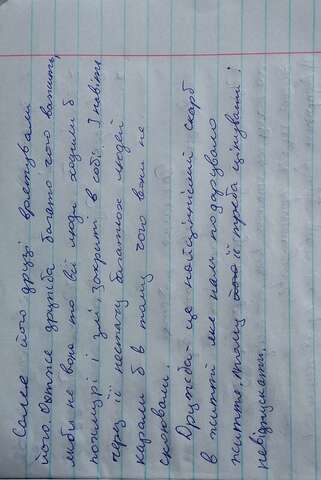 Саме його друзі врятували
його. Отже дружба багато чого вартить,
якби не вона то всі люди ходили б
похмурі і злі, закриті в собі. І навіть
через її нестачу багатьох людей
карали б в тому чого вони не
скоювали.
Дружба - це найцінніший скарб
в житті яке нам подарувало
життя, тому його її треба цінувати і
невідпускати.